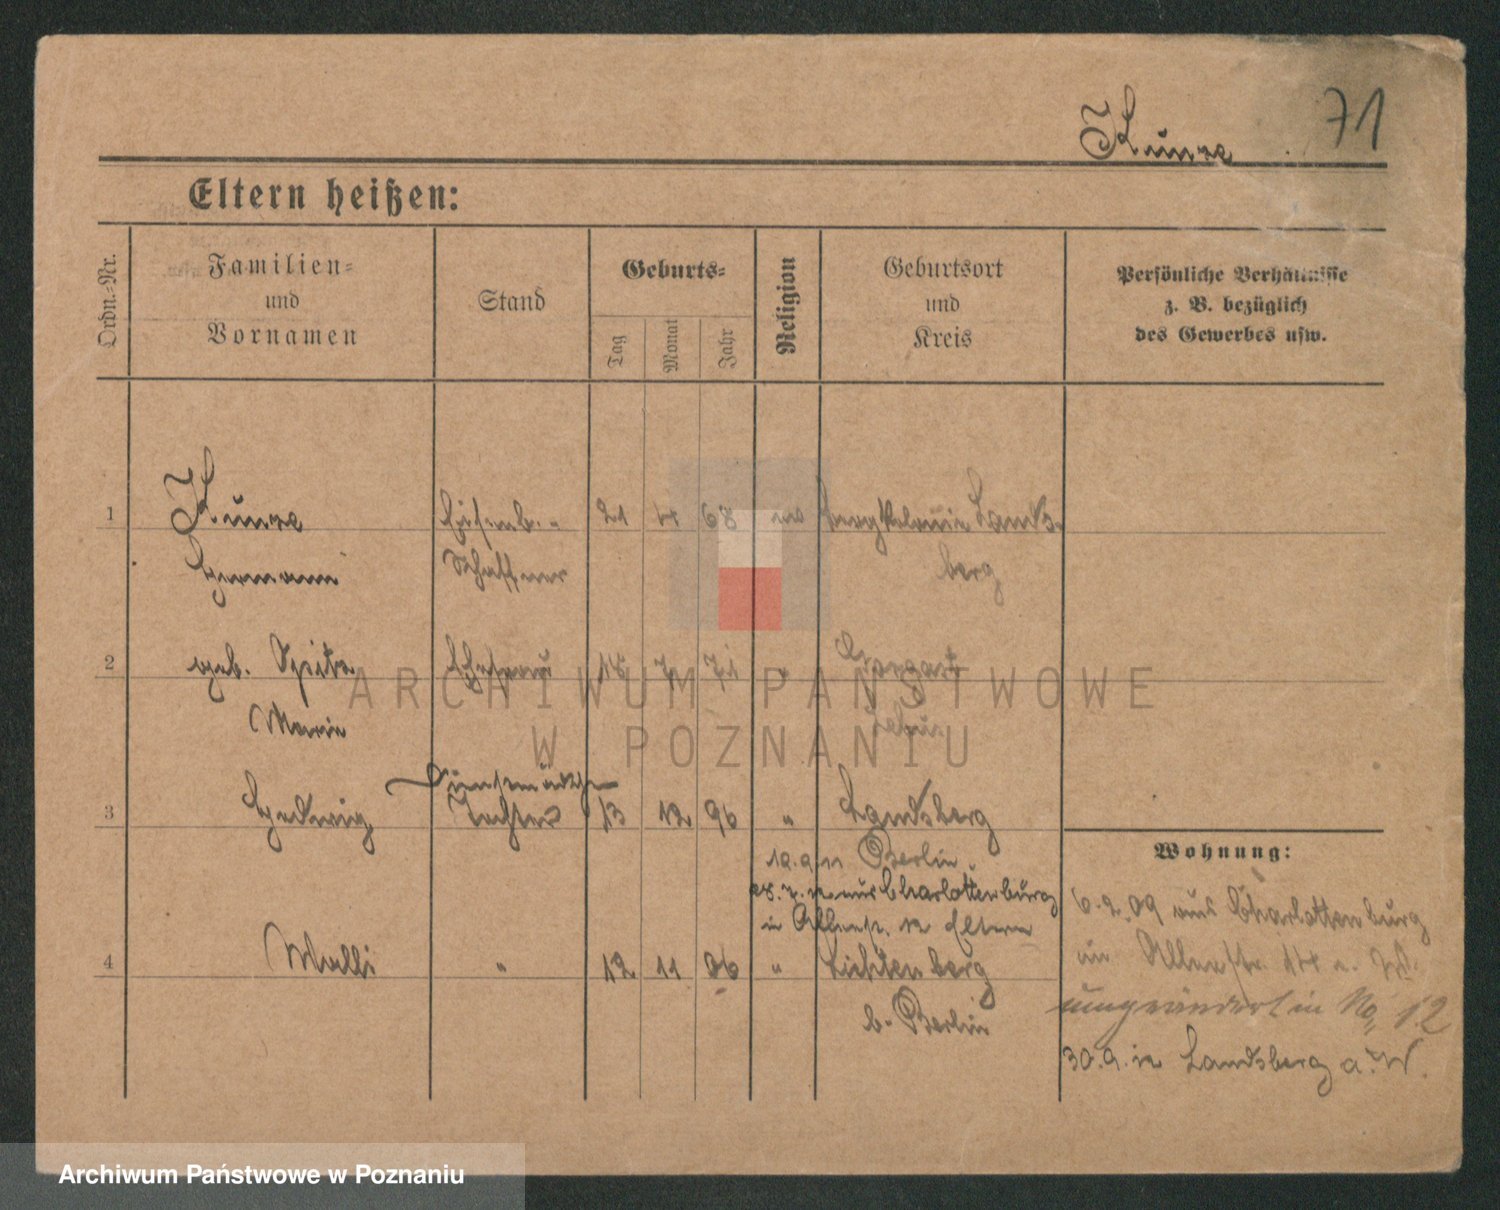 71
Kunze
Eltern heißen:
Ordn.-Nr.
Familien-
und
Vornamen
Stand
Geburts-
Tag
Monat
Jahr
Religion
Geburtsort
und
Kreis
Persönliche Verhältnisse
z. B. bezüglich
des Gewerbes usw.
1 Kunze Eisenb.- 21 4 68 ev Lands-
Hermann Schaffner berg
2 geb. Ehefrau 7 71 "
Marie Lebus
Dienstmädchen
3 Hedwig Tochter 13 12 96 " Landsberg
19.9.11 Berlin
aus Charlottenburg
in 12 Eltern
4 Walli " 12 11 06 " Lichtenberg
b. Berlin
Wohnung:
6.2.09 aus Charlottenburg
in 14
umgeändert in No 12
30.9.12 Landsberg a. W.
ARCHIWUM PAŃSTWOWE
W POZNANIU
Archiwum Państwowe w Poznaniu